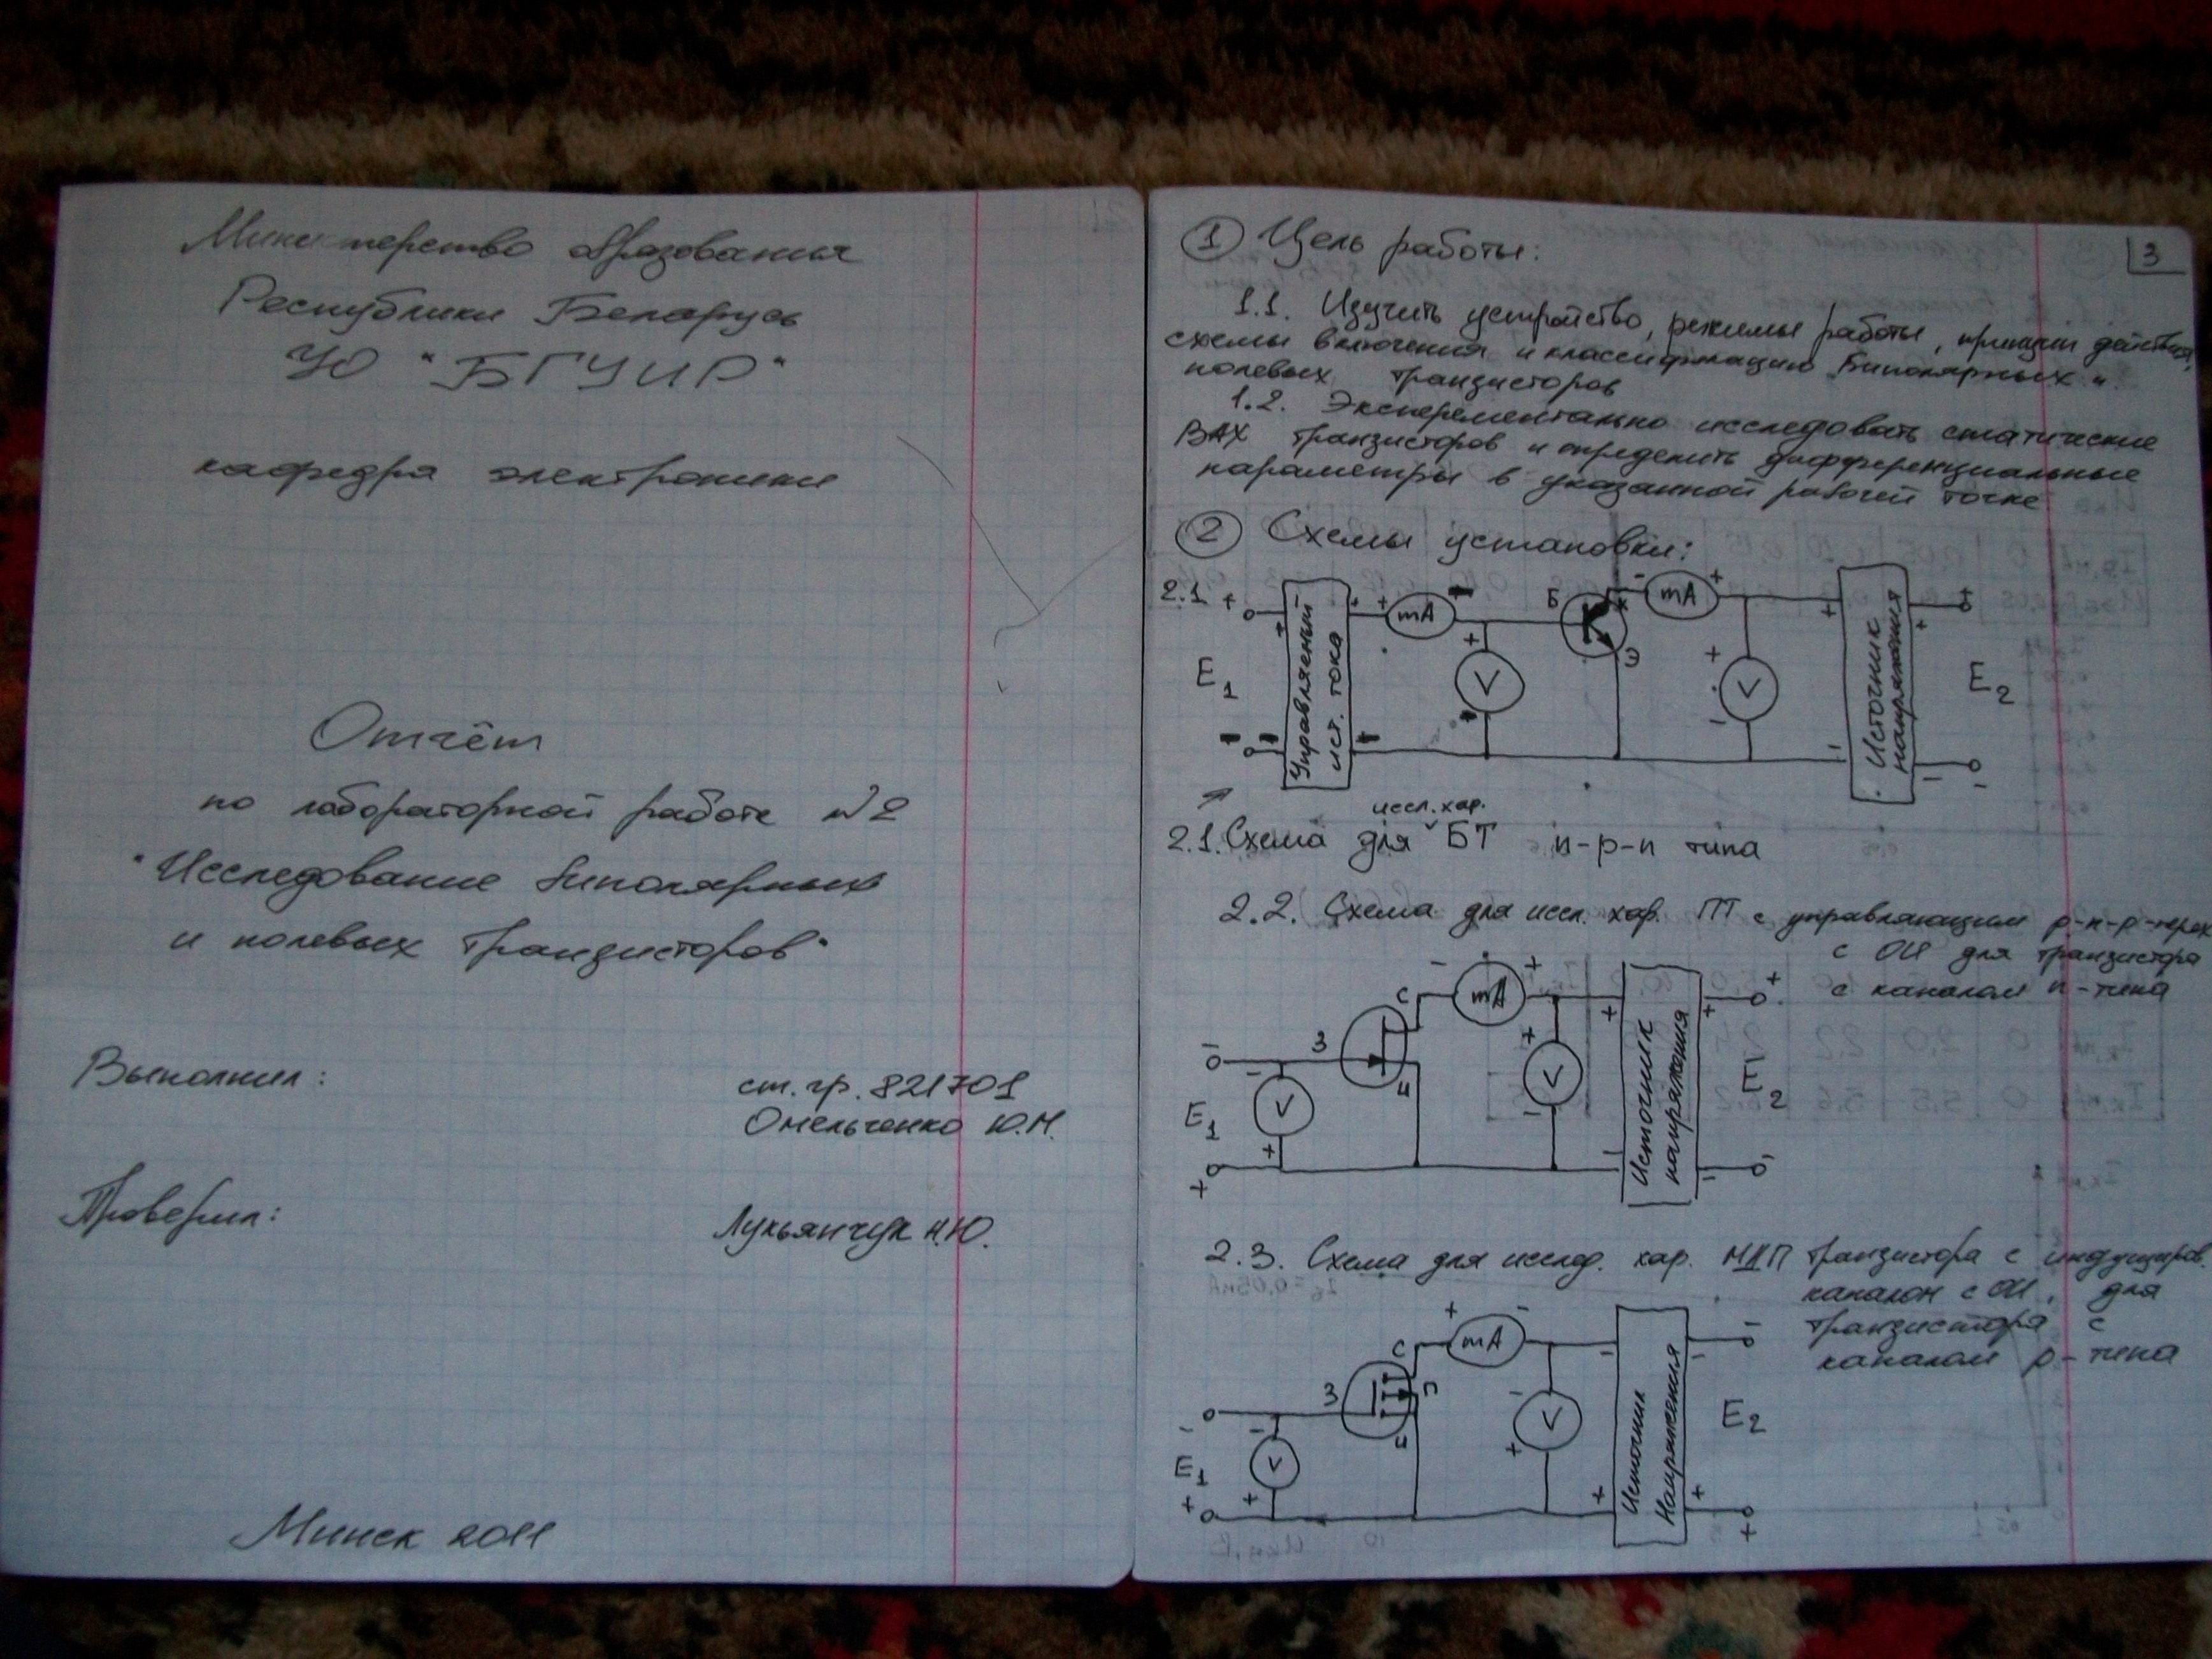 Министерство образования
Республики Беларусь
УО "БГУИР"
кафедра электроники
Отчёт
по лабораторной работе №2
"Исследование биполярных
и полевых транзисторов"
Выполнил:
ст. гр. 821701
Омельченко Ю.М.
Проверил:
Лукьянчук Н.Ю.
Минск 2011
3
1 Цель работы:
1.1. Изучить устройство, режимы работы, принцип действия,
схемы включения и классификацию биполярных и
полевых транзисторов
1.2. Эксперементально исследовать статические
ВАХ транзисторов и определить дифференциальные
параметры в указанной рабочей точке
2 Схемы установки:
2.1 + + + + mA - Б К - mA + + +
Управляемый
ист. тока
E1 + V - Э + V - Источник
напряжения E2
- - - - - -
иссл. хар.
2.1. Схема для БТ n-p-n типа
2.2. Схема для иссл. хар. ПТ с управляющим p-n-p-перех
с ОИ для транзистора
с каналом n-типа
- З С И - mA + + + +
E1 - V + + V - Источник
напряжения E2
+ - - -
2.3. Схема для исслед. хар. МДП транзистора с индуциров.
каналом с ОИ, для
транзистора с
каналом p-типа
- З С П И + mA - - - -
E1 - V + - V + Источник
Напряжения E2
+ + + +